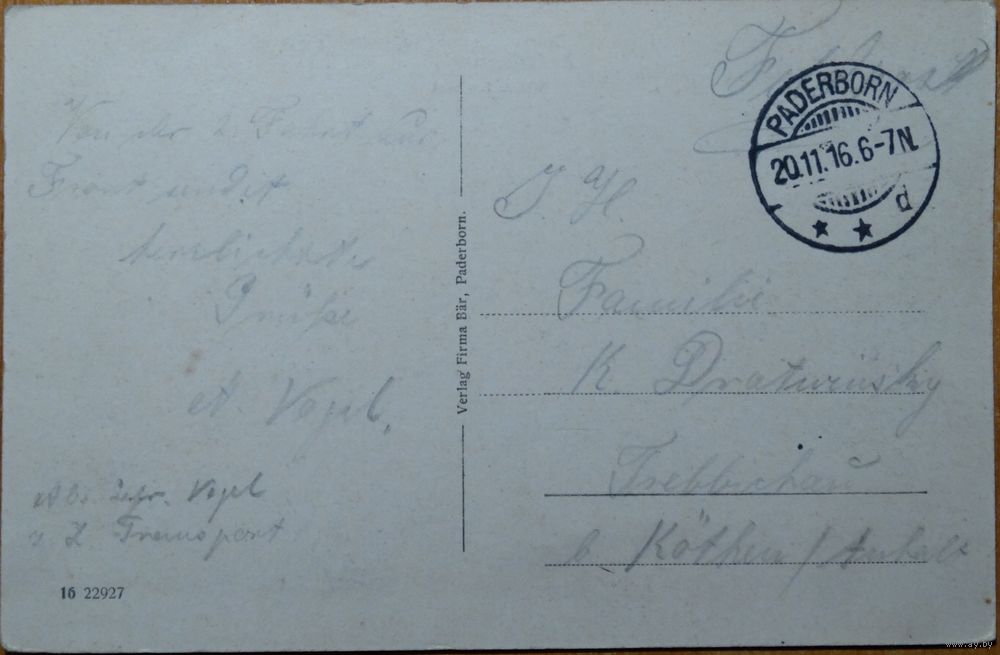 Feldpost
PADERBORN
20.11.16.6-7N.
d
Von der 2. Fahrt zur
Front sendet
herzlichste
Grüße
A. Vogel.
Vogel
Transport
16 22927
Verlag Firma Bär, Paderborn.
Familie
K.
Trebbichau
b. Köthen / Anhalt
www.ay.by